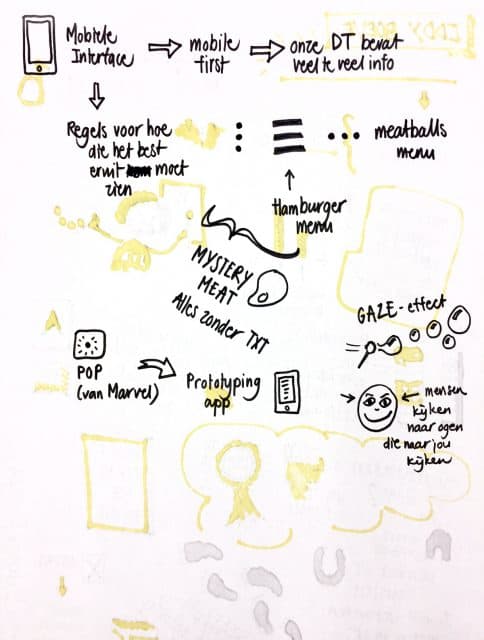 Mobiele
Interface
mobile
first
onze DT bevat
veel te veel info
Regels voor hoe
die het best
eruit moet
zien
meatballs
menu
Hamburger
menu
MYSTERY
MEAT
Alles zonder TXT
GAZE-effect
POP
(van Marvel)
Prototyping
app
mensen
kijken
naar ogen
die naar jou
kijken